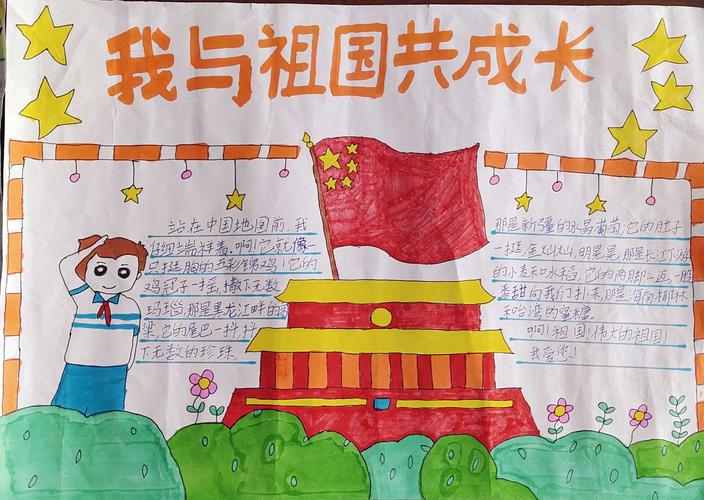 我与祖国共成长
站在中国地图前,我
仔细端祥着.啊!它就像一
只挺胸的五彩锦鸡!它的
鸡冠子一摇,撒下无数
玛瑙,那是黑龙江畔的高
梁;它的尾巴一抖,抖
下无数的珍珠
那是新疆的水晶葡萄;它的肚子
一挺,金灿灿,明晃晃,那是长江下游
的小麦和水稻;它的两脚一迈,一股
香甜向我们扑来,那是海南椰林
和哈滨的蜜糖。
啊!祖国!伟大的祖国!
我爱您!